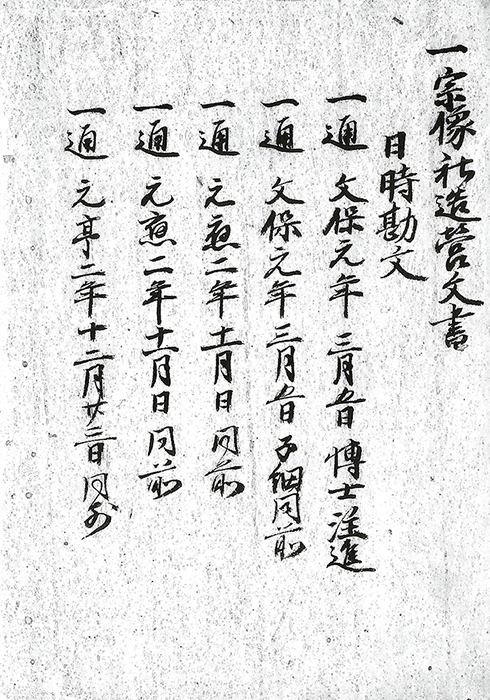 一宗像社造營文書
日時勘文
一通 文保元年三月五日博士注進
一通 文保元年三月五日子細同前
一通 元應二年十一月日同前
一通 元應二年十一月日同前
一通 元亨二年十二月廿三日同前